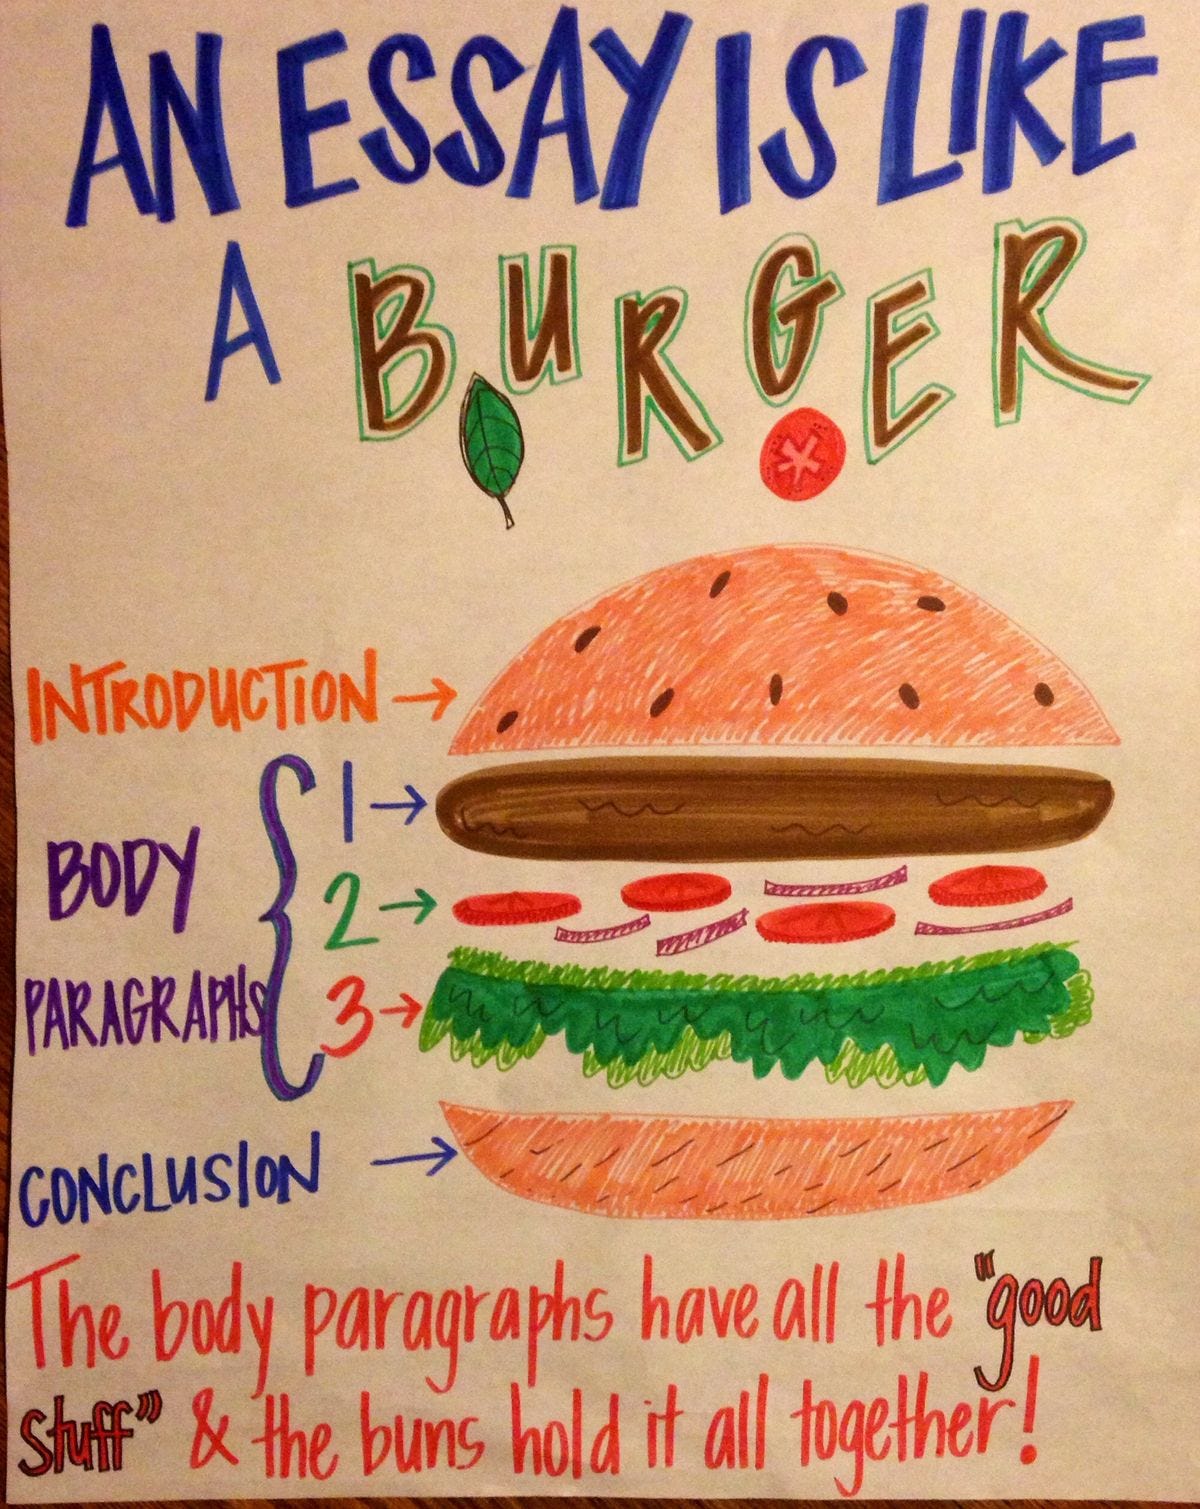 AN ESSAY IS LIKE
A BURGER
INTRODUCTION
1
BODY
2
PARAGRAPHS
3
CONCLUSION
The body paragraphs have all the "good
stuff" & the buns hold it all together!